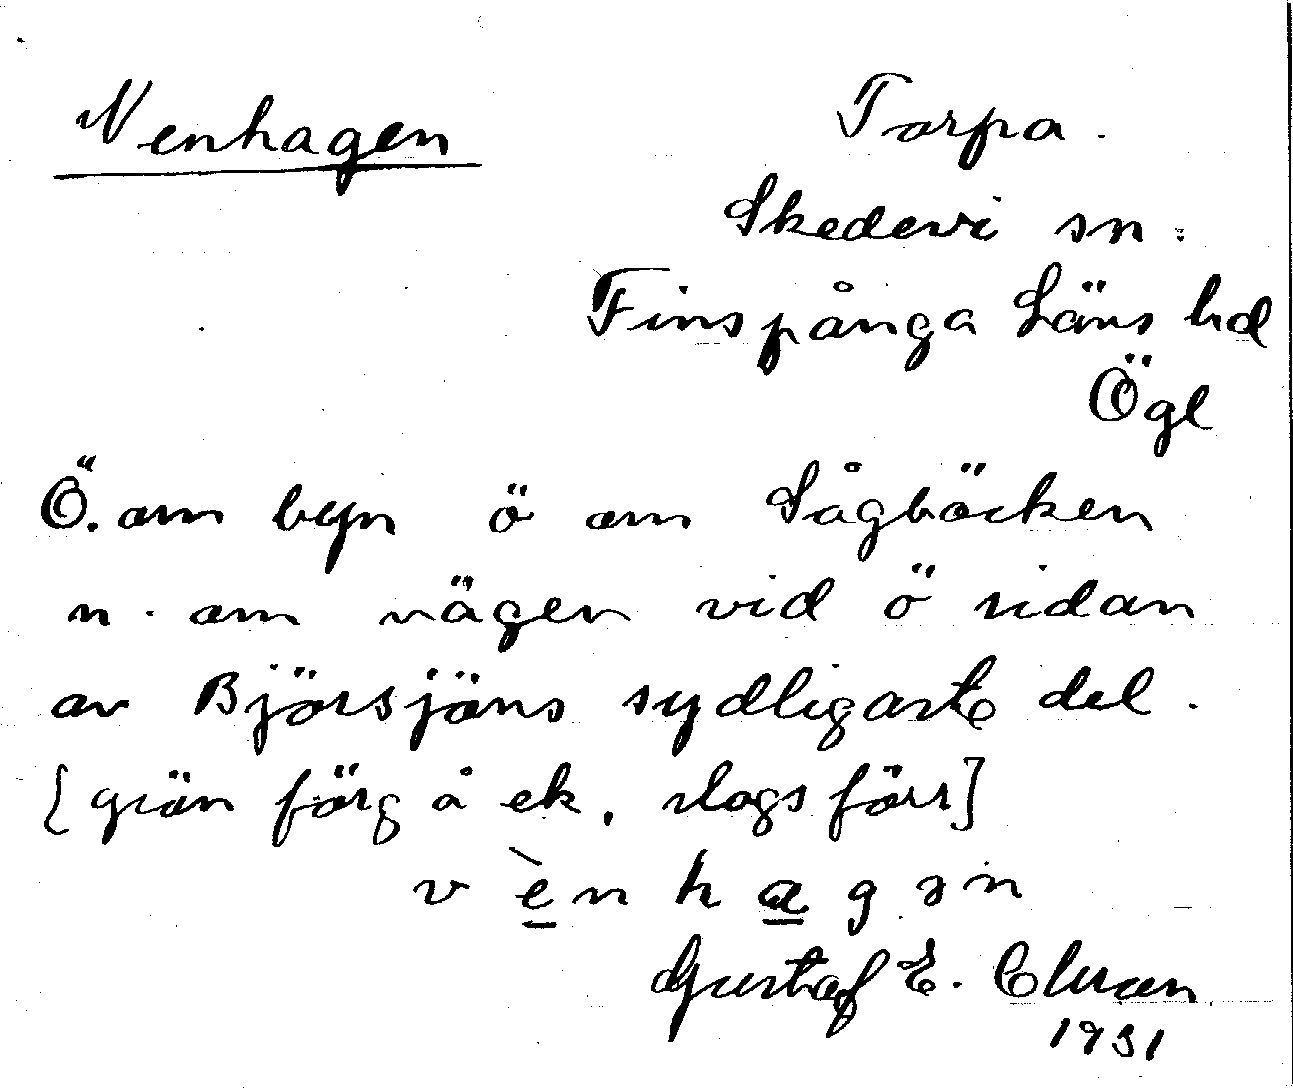 Venhagen
Torpa.
Skedevi sn.
Finspånga Läns hd
Ögl
Ö. om byn ö om Sågbäcken
n. om vägen vid ö sidan
av Björsjöns sydligaste del.
[grän färg å ek. slogs förr]
v è n h a g ə n
Gustaf E.
1931